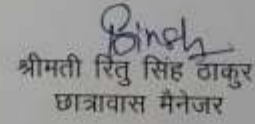 श्रीमती रितु सिंह ठाकुर
छात्रावास मैनेजर